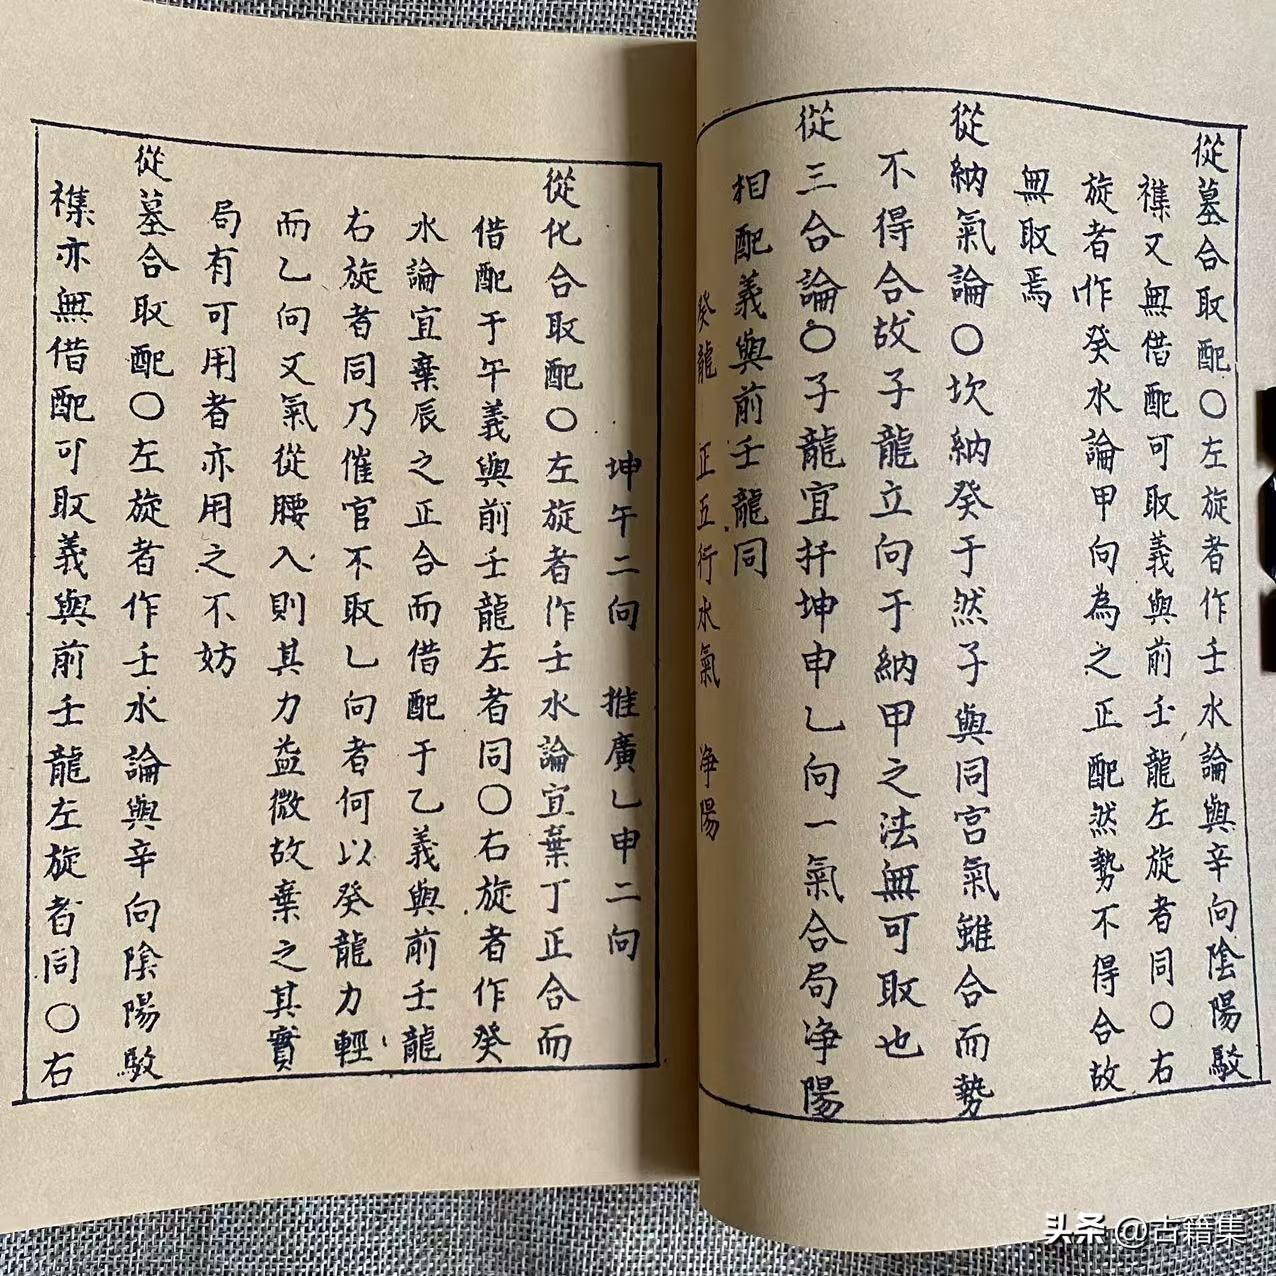 從墓合取配〇左旋者作壬水論與辛向陰陽駁
襍又無借配可取義與前壬龍左旋者同〇右
旋者作癸水論甲向為之正配然勢不得合故
無取焉
從納氣論〇坎納癸于然子與同宮氣雖合而勢
不得合故子龍立向于納甲之法無可取也
從三合論〇子龍宜扦坤申乙向一氣合局净陽
相配義與前壬龍同
癸龍 正五行水氣 净陽
坤午二向 推廣乙申二向
從化合取配〇左旋者作壬水論宜棄丁正合而
借配于午義與前壬龍左者同〇右旋者作癸
水論宜棄辰之正合而借配于乙義與前壬龍
右旋者同乃催官不取乙向者何以癸龍力輕
而乙向又氣從腰入則其力益微故棄之其實
局有可用者亦用之不妨
從墓合取配〇左旋者作壬水論與辛向陰陽駁
襍亦無借配可取義與前壬龍左旋者同〇右
头条 @古籍集